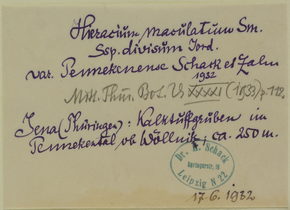 Hieracium maculatum Sm.
Ssp. divisum Jord.
var. Pennekenense Schack et Zahn
1932
Mitt. Thür. Bot. V. XXXXI (1933) p. 112.
Jena (Thüringen): Kalktuffgruben im
Pennekental ob Wöllnitz, ca. 250 m.
Dr. H. Schack
Leipzig N 22
17.6.1932